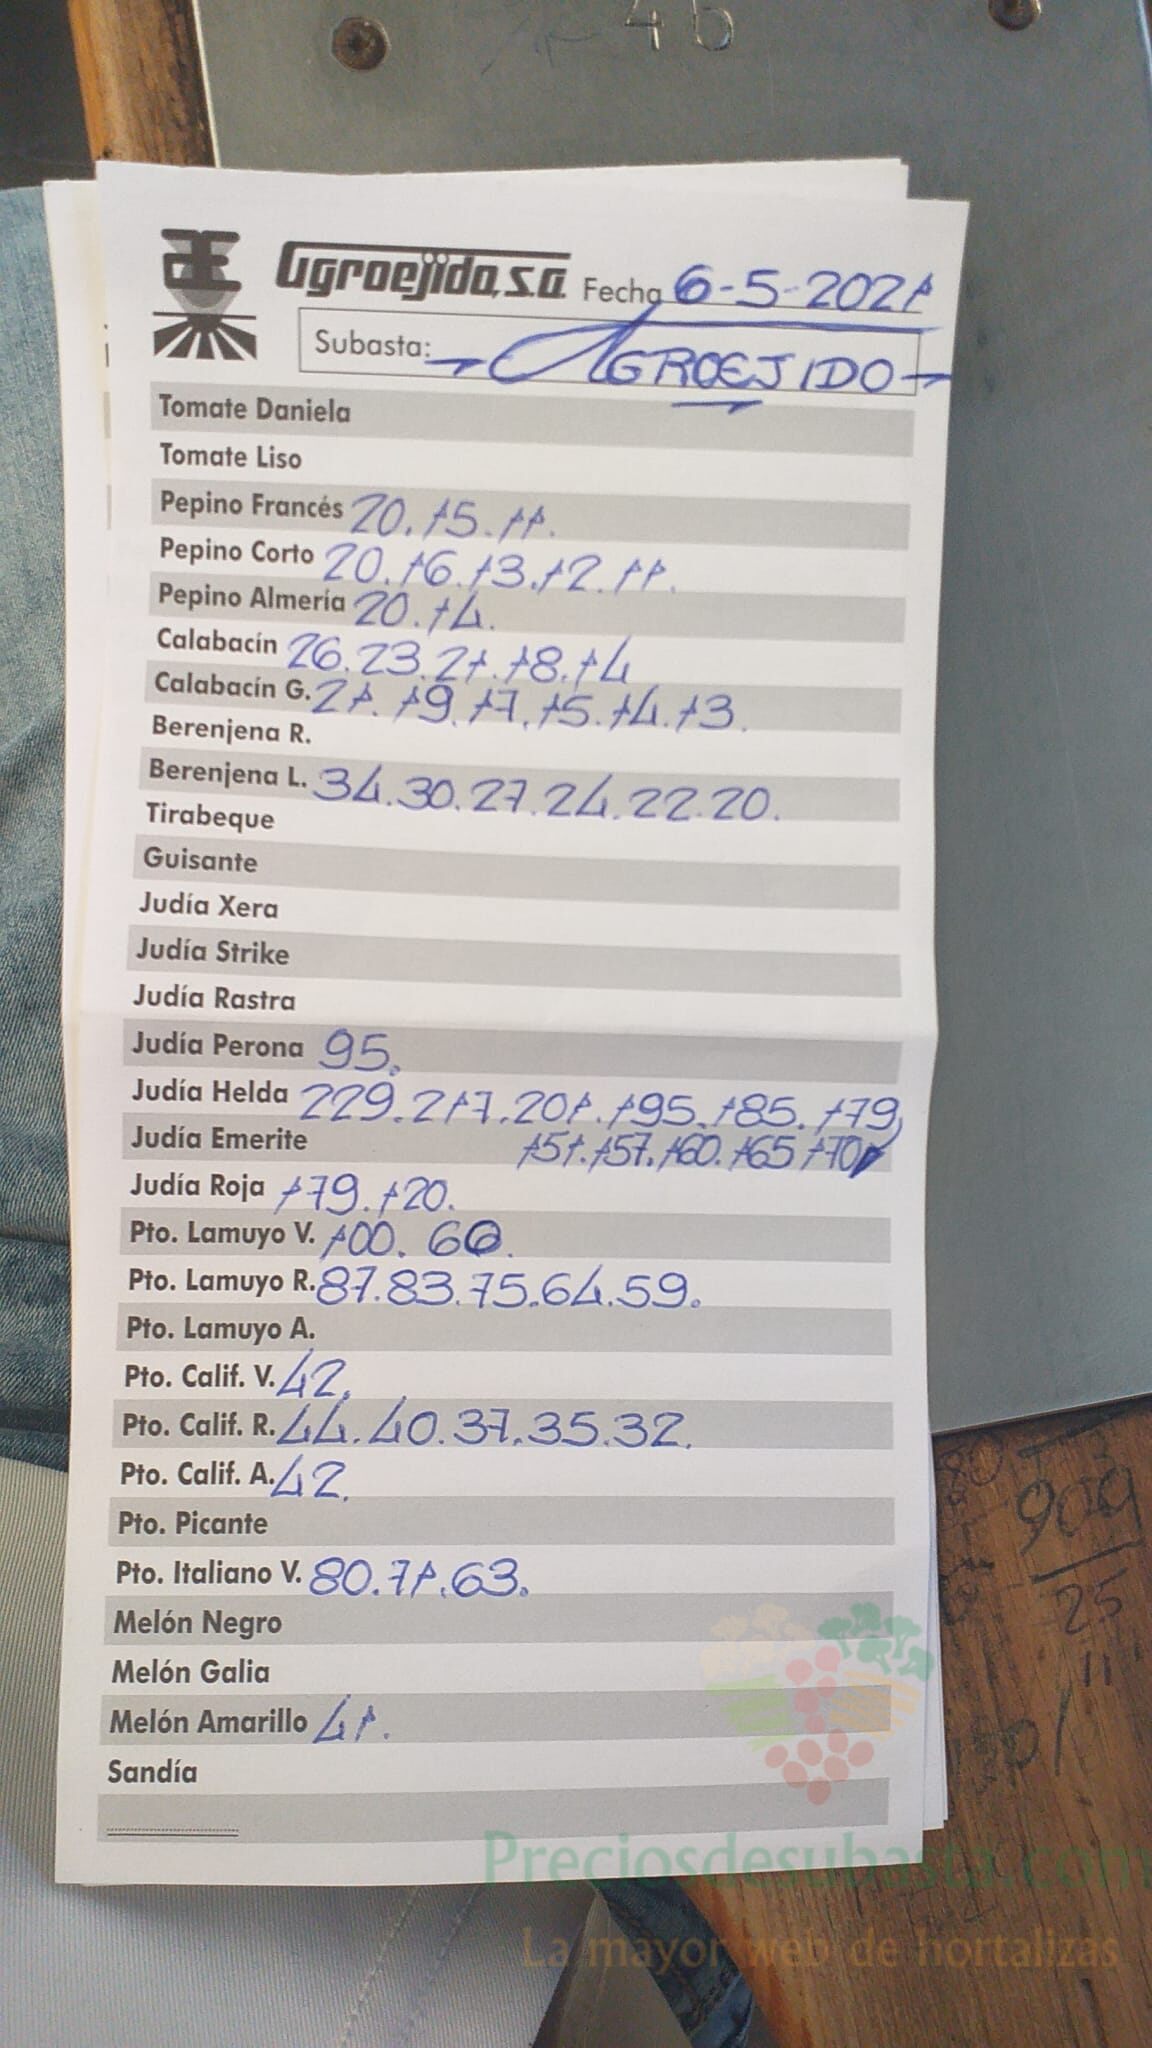 46
Agroejido, s.a. Fecha 6-5-2021
Subasta: AGROEJIDO
Tomate Daniela
Tomate Liso
Pepino Francés 20. 15. 11.
Pepino Corto 20. 16. 13. 12. 11.
Pepino Almería 20. 14.
Calabacín 26. 23. 21. 18. 14
Calabacín G. 21. 19. 17. 15. 14. 13.
Berenjena R.
Berenjena L. 34. 30. 27. 24. 22. 20.
Tirabeque
Guisante
Judía Xera
Judía Strike
Judía Rastra
Judía Perona 95.
Judía Helda 229. 217. 201. 195. 185. 179
Judía Emerite 151. 157. 160. 165 170
Judía Roja 179. 120.
Pto. Lamuyo V. 100. 60.
Pto. Lamuyo R. 87. 83. 75. 64. 59.
Pto. Lamuyo A.
Pto. Calif. V. 42.
Pto. Calif. R. 44. 40. 37. 35. 32.
Pto. Calif. A. 42.
Pto. Picante
Pto. Italiano V. 80. 71. 63.
Melón Negro
Melón Galia
Melón Amarillo 41.
Sandía
909
25
11
Preciosdesubasta.com
La mayor web de hortalizas